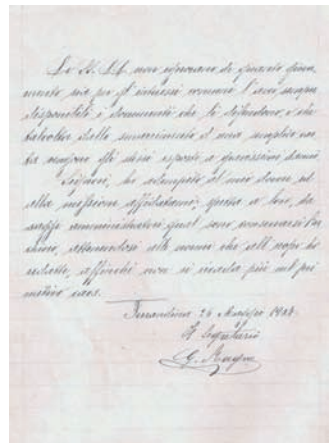 Le SS. LL. non ignorano di quanto giova-
mento sia per gl'interessi comuni l'aver sempre
disponibili i documenti che li difendono, e che
talvolta dallo smarrimento d'una semplice no-
ta vengono gli stessi esposti a gravissimi danni
Signori, ho adempito al mio dovere ed
alla missione affidatami; spetta a loro, da
saggi amministratori quali sono conservarsi l'ar-
chivio, attenendosi alle norme che all'uopo ho
redatte, affinchè non si ricada più nel pri-
mitivo caos.
Ferrandina 26 Maggio
Il Segretario
G.